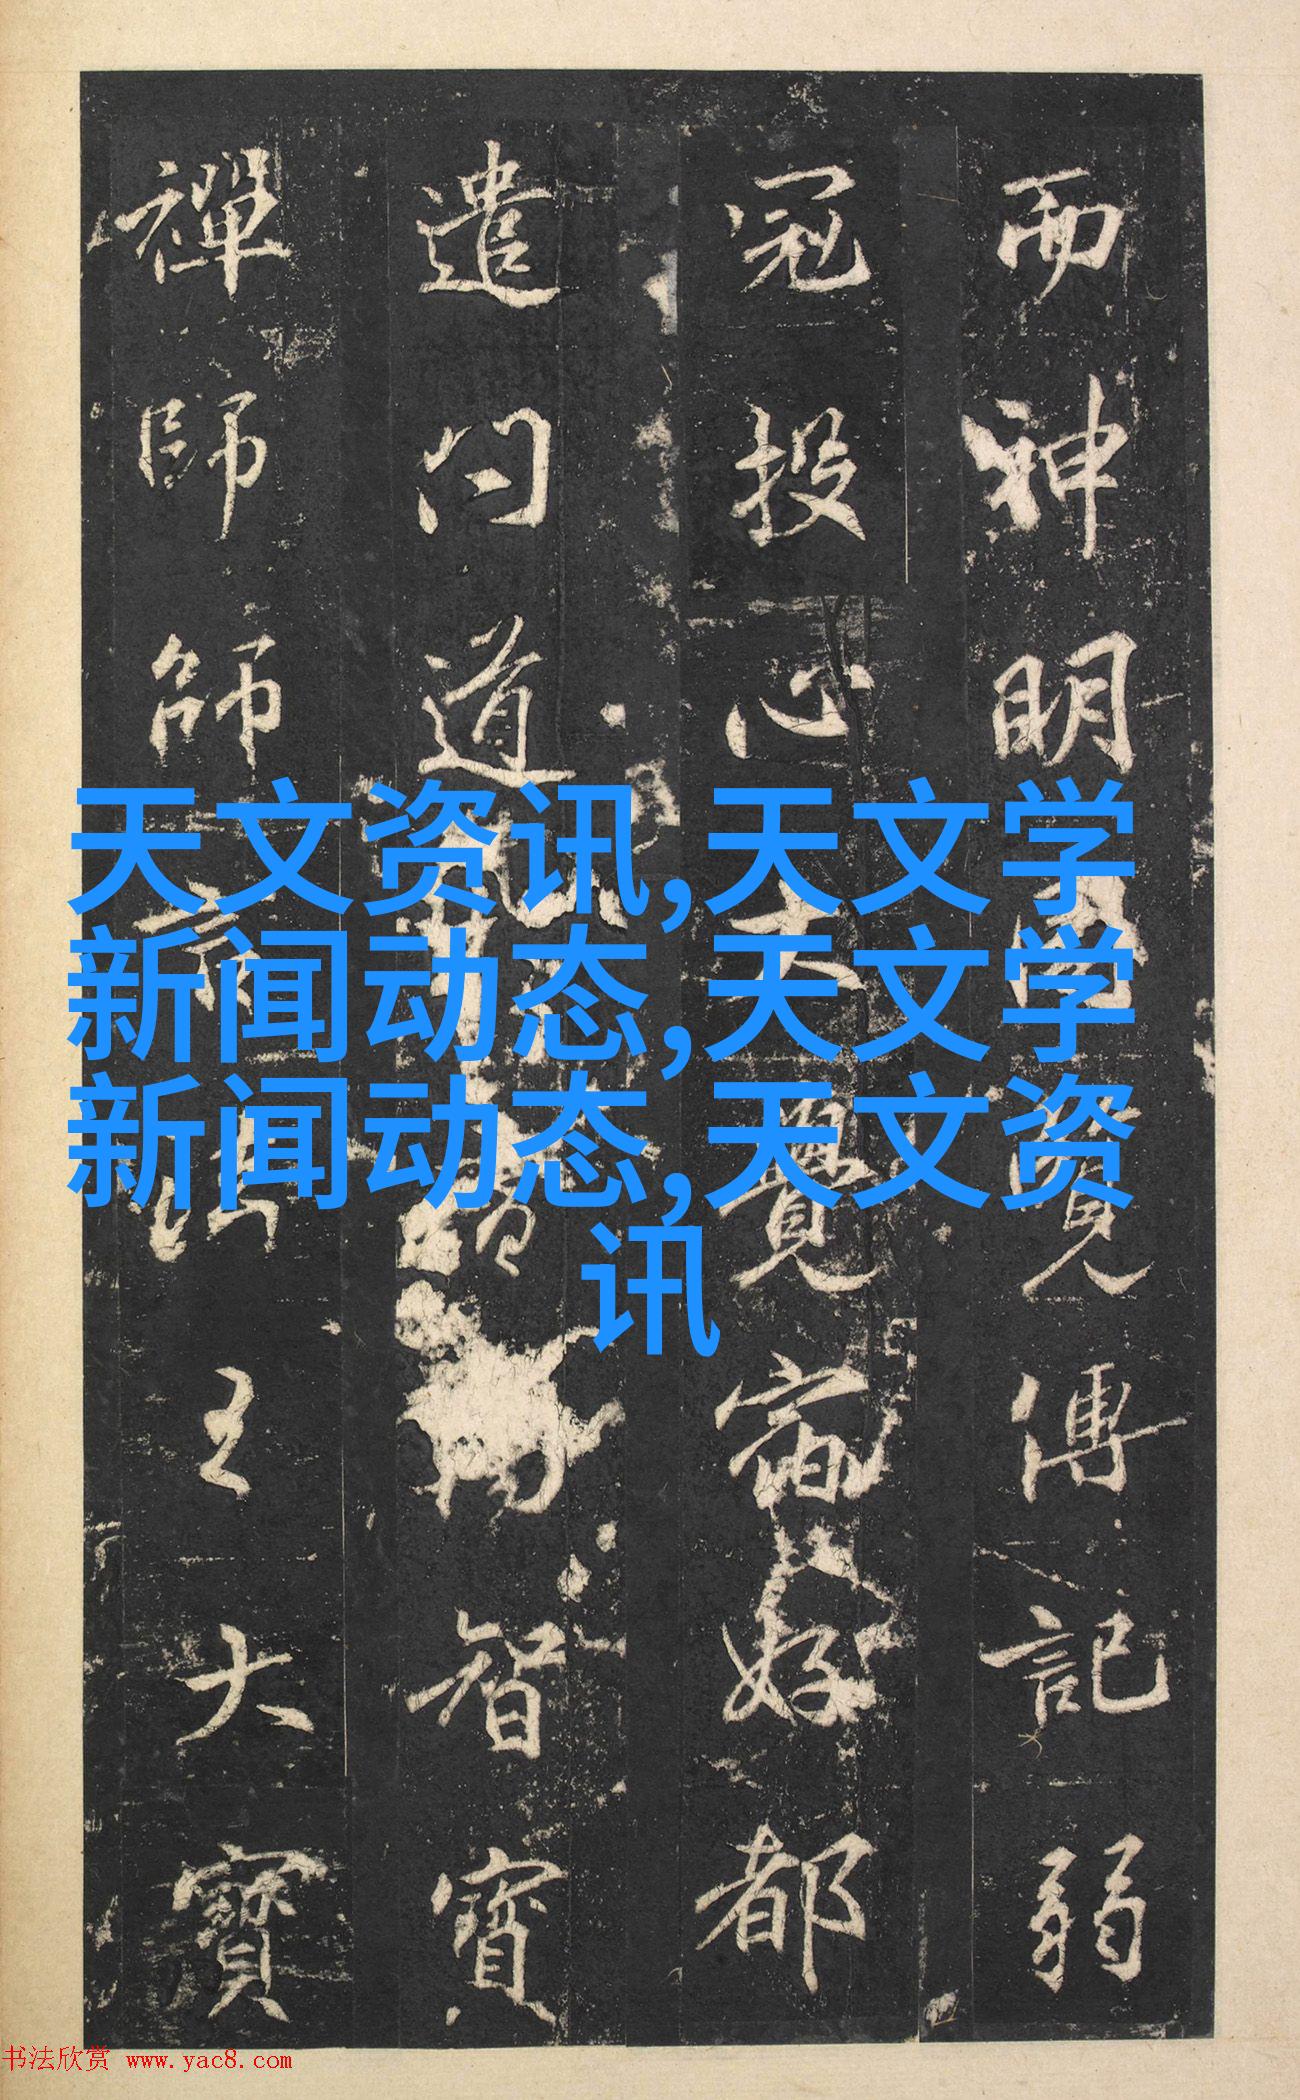 而神明覽傳記弱
冠投心大覺宿好都
遣問道智寶
禪師師法王大寶
天文资讯,天文学
新闻动态,天文学
新闻动态,天文资
讯
书法欣赏 www.yac8.com